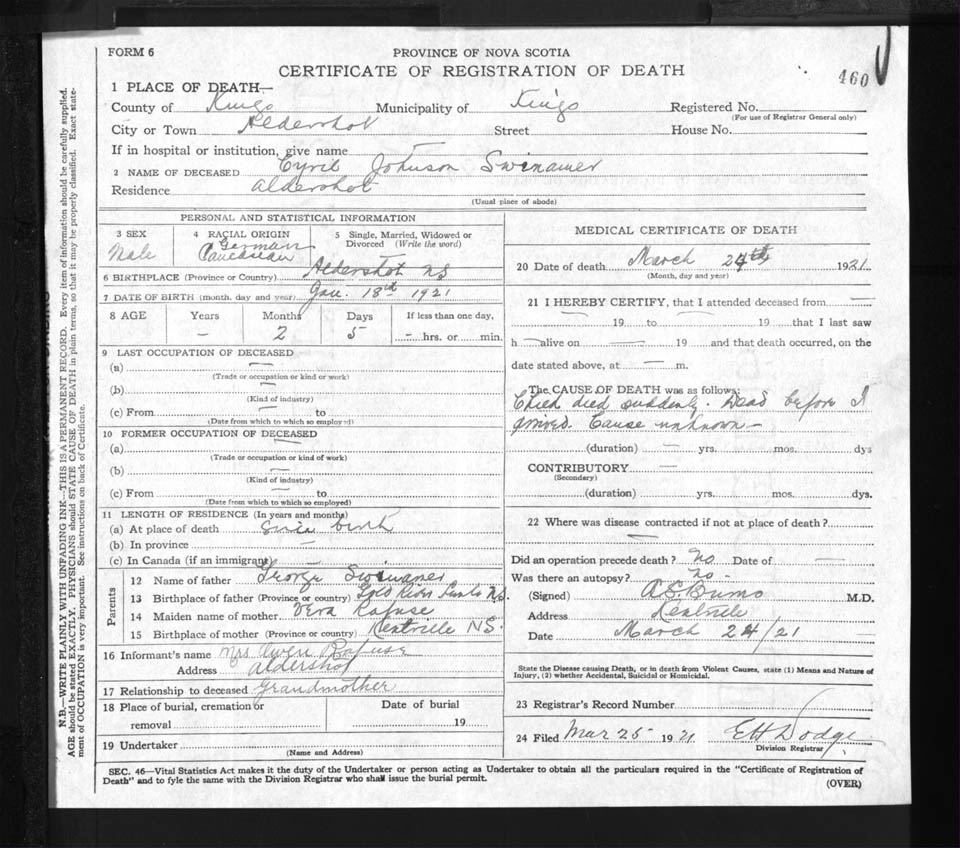 FORM 6
PROVINCE OF NOVA SCOTIA
CERTIFICATE OF REGISTRATION OF DEATH
460
1 PLACE OF DEATH—
County of Kings Municipality of Kings Registered No.
(For use of Registrar General only)
City or Town Aldershot Street House No.
If in hospital or institution, give name —
2 NAME OF DECEASED Cyril Johnson Swinamer
Residence Aldershot
(Usual place of abode)
PERSONAL AND STATISTICAL INFORMATION
3 SEX 4 RACIAL ORIGIN 5 Single, Married, Widowed or
Divorced (Write the word)
Male German
Caucasian
6 BIRTHPLACE (Province or Country) Aldershot NS
7 DATE OF BIRTH (month, day and year) Jan. 18th 1921
8 AGE Years Months Days If less than one day,
— 2 5 — hrs. or min.
9 LAST OCCUPATION OF DECEASED
(a) —
(Trade or occupation or kind or work)
(b) —
(Kind of industry)
(c) From — to
(Date from which to which so employed)
10 FORMER OCCUPATION OF DECEASED
(a) —
(Trade or occupation or kind of work)
(b) —
(Kind of industry)
(c) From — to
(Date from which to which so employed)
11 LENGTH OF RESIDENCE (In years and months)
(a) At place of death Since birth
(b) In province —
(c) In Canada (if an immigrant) —
Parents
12 Name of father George Swinamer
13 Birthplace of father (Province or country) Gold River Lunb N.S.
14 Maiden name of mother Vera Rafuse
15 Birthplace of mother (Province or country) Kentville NS.
16 Informant's name Mrs Owen Rafuse
Address Aldershot
17 Relationship to deceased Grandmother
18 Place of burial, cremation or Date of burial
removal 19
19 Undertaker
(Name and Address)
MEDICAL CERTIFICATE OF DEATH
20 Date of death March 24th 1921
(Month, day and year)
21 I HEREBY CERTIFY, that I attended deceased from —
19 to 19 that I last saw
h — alive on — 19 and that death occurred, on the
date stated above, at — m.
The CAUSE OF DEATH was as follows:
Child died suddenly. Dead before I
arrived. Cause unknown —
(duration) — yrs. mos. dys
CONTRIBUTORY —
(Secondary)
(duration) yrs. mos. dys.
22 Where was disease contracted if not at place of death?
—
Did an operation precede death? No Date of —
Was there an autopsy? No -
(Signed) A.S. Burns M.D.
Address Kentville
Date March 24/21
State the Disease causing Death, or in death from Violent Causes, state (1) Means and Nature of
Injury, (2) whether Accidental, Suicidal or Homicidal.
23 Registrar's Record Number
24 Filed Mar 25 1921 EH Dodge
Division Registrar
SEC. 46—Vital Statistics Act makes it the duty of the Undertaker or person acting as Undertaker to obtain all the particulars required in the "Certificate of Registration of
Death" and to fyle the same with the Division Registrar who shall issue the burial permit.
(OVER)
N.B.—WRITE PLAINLY WITH UNFADING INK—THIS IS A PERMANENT RECORD. Every item of information should be carefully supplied.
AGE should be stated EXACTLY. PHYSICIANS should STATE CAUSE OF DEATH in plain terms, so that it may be properly classified. Exact state-
ment of OCCUPATION is very important. See instructions on back of Certificate.